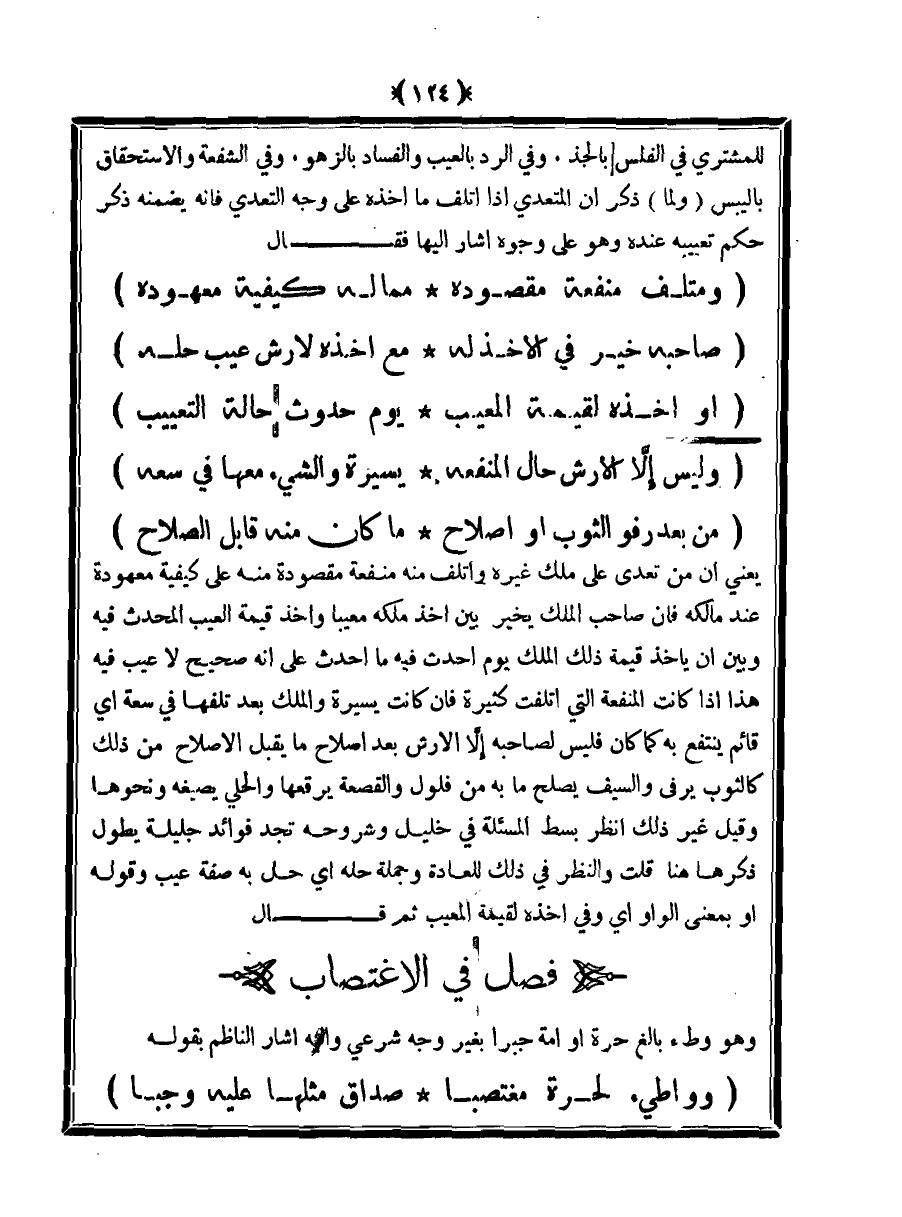 ﴿١٢٤﴾
للمشتري في الفلس بالجذ ٠ وفي الرد بالعيب والفساد بالزهو ٠ وفي الشفعة والاستحقاق
باليبس ( ولما ) ذكر ان المتعدي اذا اتلف ما اخذه على وجه التعدي فانه يضمنه ذكر
حكم تعييبه عنده وهو على وجوه اشار اليها فقـــــال
( ومتلـف منفعة مقصـوده ٭ ممالـه كيفية معهـوده )
( صاحبه خيـر في الاخـذ له ٭ مع اخذه لارش عيب حلـه )
( او اخـذه لقيمـة المعيـب ٭ يوم حدوث حالة التعييب )
( وليس إلَّا الارش حال المنفعه ٭ يسيرة والشيء معها في سعه )
( من بعد رفو الثوب او اصلاح ٭ ما كان منه قابل الصلاح )
يعني ان من تعدى على ملك غيره واتلف منه منفعة مقصودة منه على كيفية معهودة
عند مالكه فان صاحب الملك يخير بين اخذ ملكه معيبا واخذ قيمة العيب المحدث فيه
وبين ان ياخذ قيمة ذلك الملك يوم احدث فيه ما احدث على انه صحيح لا عيب فيه
هذا اذا كانت المنفعة التي اتلفت كثيرة فان كانت يسيرة والملك بعد تلفها في سعة اي
قائم ينتفع به كما كان فليس لصاحبه إلَّا الارش بعد اصلاح ما يقبل الاصلاح من ذلك
كالثوب يرفى والسيف يصلح ما به من فلول والقصعة يرقعها والحلي يصيغه ونحوها
وقيل غير ذلك انظر بسط المسئلة في خليل وشروحه تجد فوائد جليلة يطول
ذكرها هنا قلت والنظر في ذلك للعادة وجملة حله اي حل به صفة عيب وقوله
او بمعنى الواو اي وفي اخذه لقيمة المعيب ثم قـــــال
فصل في الاغتصاب
وهو وطء بالغ حرة او امة جبرا بغير وجه شرعي واليه اشار الناظم بقوله
( وواطيء لحـرة مغتصبـا ٭ صداق مثلهـا عليه وجبـا )